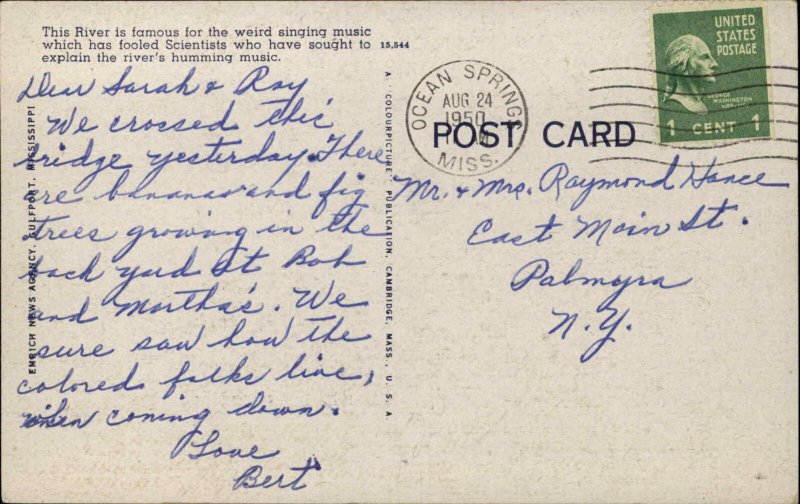 This River is famous for the weird singing music
which has fooled Scientists who have sought to 15,544
explain the river's humming music.
Dear Sarah & Ray
We crossed this
bridge yesterday. There
are bananas and fig
trees growing in the
back yard at Bob
and Martha's. We
sure saw how the
colored folks live,
when coming down.
Love
Bert
EMRICH NEWS AGENCY, GULFPORT, MISSISSIPPI
A COLOURPICTURE PUBLICATION, CAMBRIDGE, MASS., U. S. A
OCEAN SPRINGS
AUG 24
1950
M
MISS.
POST CARD
UNITED
STATES
POSTAGE
GEORGE
WASHINGTON
1 CENT 1
Mr. & Mrs. Raymond Hance
East Main St.
Palmyra
N.Y.